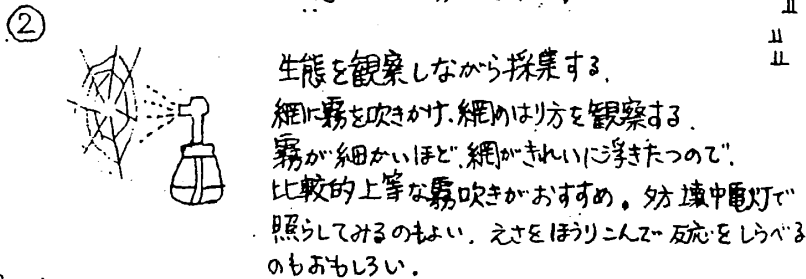 ②
生態を観察しながら採集する。
網に霧を吹きかけ、網のはり方を観察する。
霧が細かいほど、網がきれいに浮きたつので、
比較的上等な霧吹きがおすすめ。夕方 懐中電灯で
照らしてみるのもよい。えさをほうりこんで反応をしらべる
のもおもしろい。